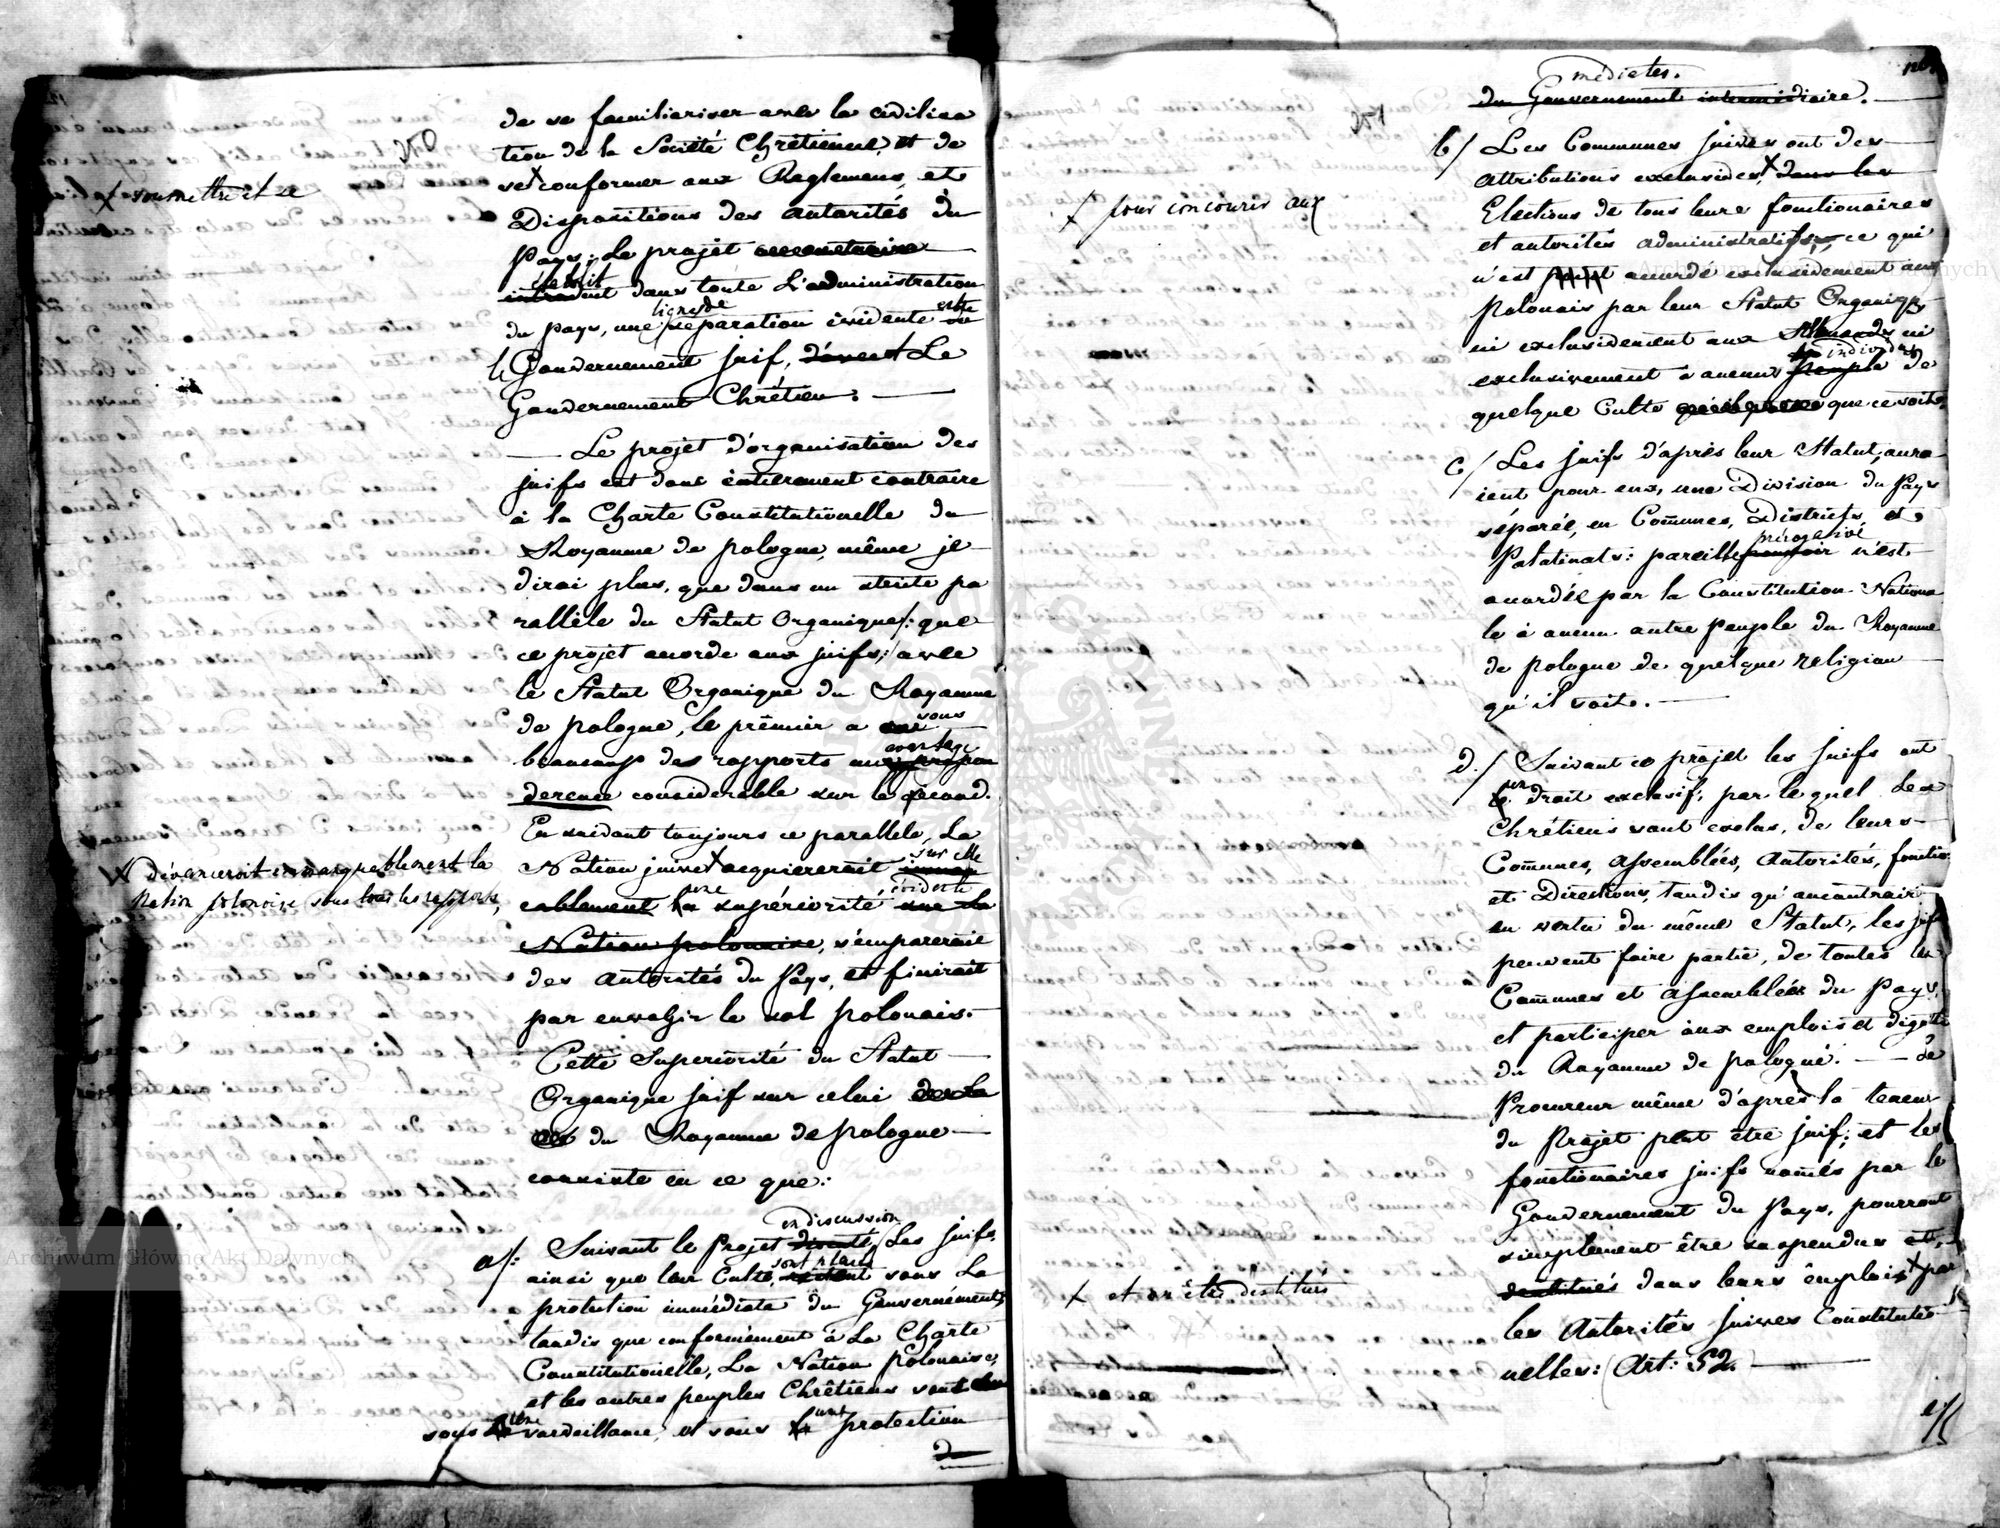 250
de se familiariser avec la civilisa
tion de la Société Chrétienne, et de
se + conformer aux Reglemens, et
+ soumettre et se
Dispositions des autorités du
Pays; Le projet
établit
dans toute L'administration
ligne de
du Pays, une séparation évidente entre
le Gouvernement juif, et Le
Gouvernement Chrétien. —
— Le projet d'organisation des
juifs est donc entierement contraire
à la Charte Constitutionelle du
Royaume de pologne, même je
dirai plus, que dans un stricte pa
rallèle du Statut Organique /: que
ce projet accorde aux juifs :/ avec
le Statut Organique du Royaume
de pologne, le prémier a sous
beaucoup des rapports un avantage
prepon
derence considerable sur le second.
En suivant toujours ce parallele, La
Nation juive + acquiererait sur elle
+ dévanceroit remarquablement la
Nation polonoise sous tous les rapports,
évidente
une supériorité sur La
Nation polonaise, s'emparerait
des autorités du Pays, et finirait
par envahir le sol polonais.
Cette superiorité du Statut
Organique juif sur celui de la
du Royaume de pologne
consiste en ce que:
en discussion
a/: Suivant le Projet discuté, Les juifs,
sont placés
ainsi que leur Culte, sous La
protection immédiate du Gouvernement,
tandis que conformément à La Charte
Constitutionelle, La Nation Polonaise,
et les autres peuples Chrêtiens sont
sous une surveillance, et sous une protection
251
médiates.
du Gouvernement intermédiaire. —
b/ Les Communes juives ont des
attributions exclusives, + dans les
+ pour concourir aux
Elections de tous leurs fonctionaires
et autorités administratifs, ce qui
n'est point accordé exclusivement aux
Polonais par leur Statut Organique,
ni exclusivement aux Allemands ni
individu
exclusivement à aucun peuple de
quelque Culte que ce soit.
c/ Les juifs d'après leur Statut, aura
ient pour eux, une Division du Pays
séparée, en Com̃unes, Districts, et
prérogative
Palatinats: pareille pouvoir n'est
accordée par la Constitution Nationa
le à aucun autre Peuple du Royaume
de pologne de quelque religion
qu'il soit. —
d./ Suivant ce projet les Juifs ont
un droit exclusif, par lequel Les
Chrétiens sont exclus, de leurs
Com̃unes, assemblées, autorités, fonctio
et Directions, tandis qu'au contraire
en vertu du même Statut, les juif
peuvent faire partie, de toutes les
Com̃unes et assemblées du Pays,
et participer aux emplois et dignités
du Royaume de pologne. — Le
Procureur même d'après la teneur
du Projet peut être juif; et les
fonctionaires juifs nom̃és par le
Gouvernement du Pays, pourront
simplement être suspendus et
destitués dans leurs êmplois + par
+ et même être destitués
les Autorités juives Constitutio
nelles: (Art: 52.) —
e/
Archiwum Główne Akt Dawnych